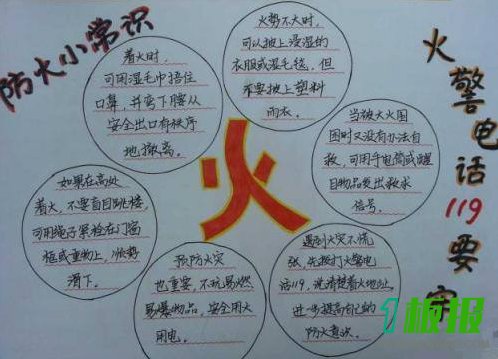 防火小常识
着火时，
可用湿毛巾捂住
口鼻，并弯下腰从
安全出口有秩序
地撤离。
火势不大时，
可以披上浸湿的
衣服或湿毛毯，但
不要披上塑料
雨衣。
当被大火围
困时又没有办法自
救，可用手电筒或醒
目物品发出求救
信号。
火警电话119要牢
如果在高处
着火，不要盲目跳楼，
可用绳子紧栓在门窗
框或重物上，顺势
滑下。
火
预防火灾
也重要，不玩易燃
易爆物品，安全用火
用电。
遇到火灾不慌
张，先拨打火警电
话119，说清楚着火地址，
进一步提高自己的
防火意识。
1板报